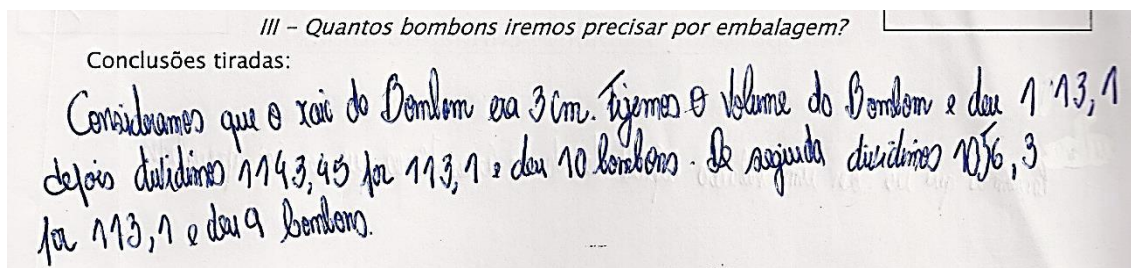 III – Quantos bombons iremos precisar por embalagem?
Conclusões tiradas:
Consideramos que o raio do Bombom era 3 cm. Fizemos o Volume do Bombom e deu 113,1
depois dividimos 1143,45 por 113,1 e deu 10 bombons. De seguida dividimos 1056,3
por 113,1 e deu 9 bombons.